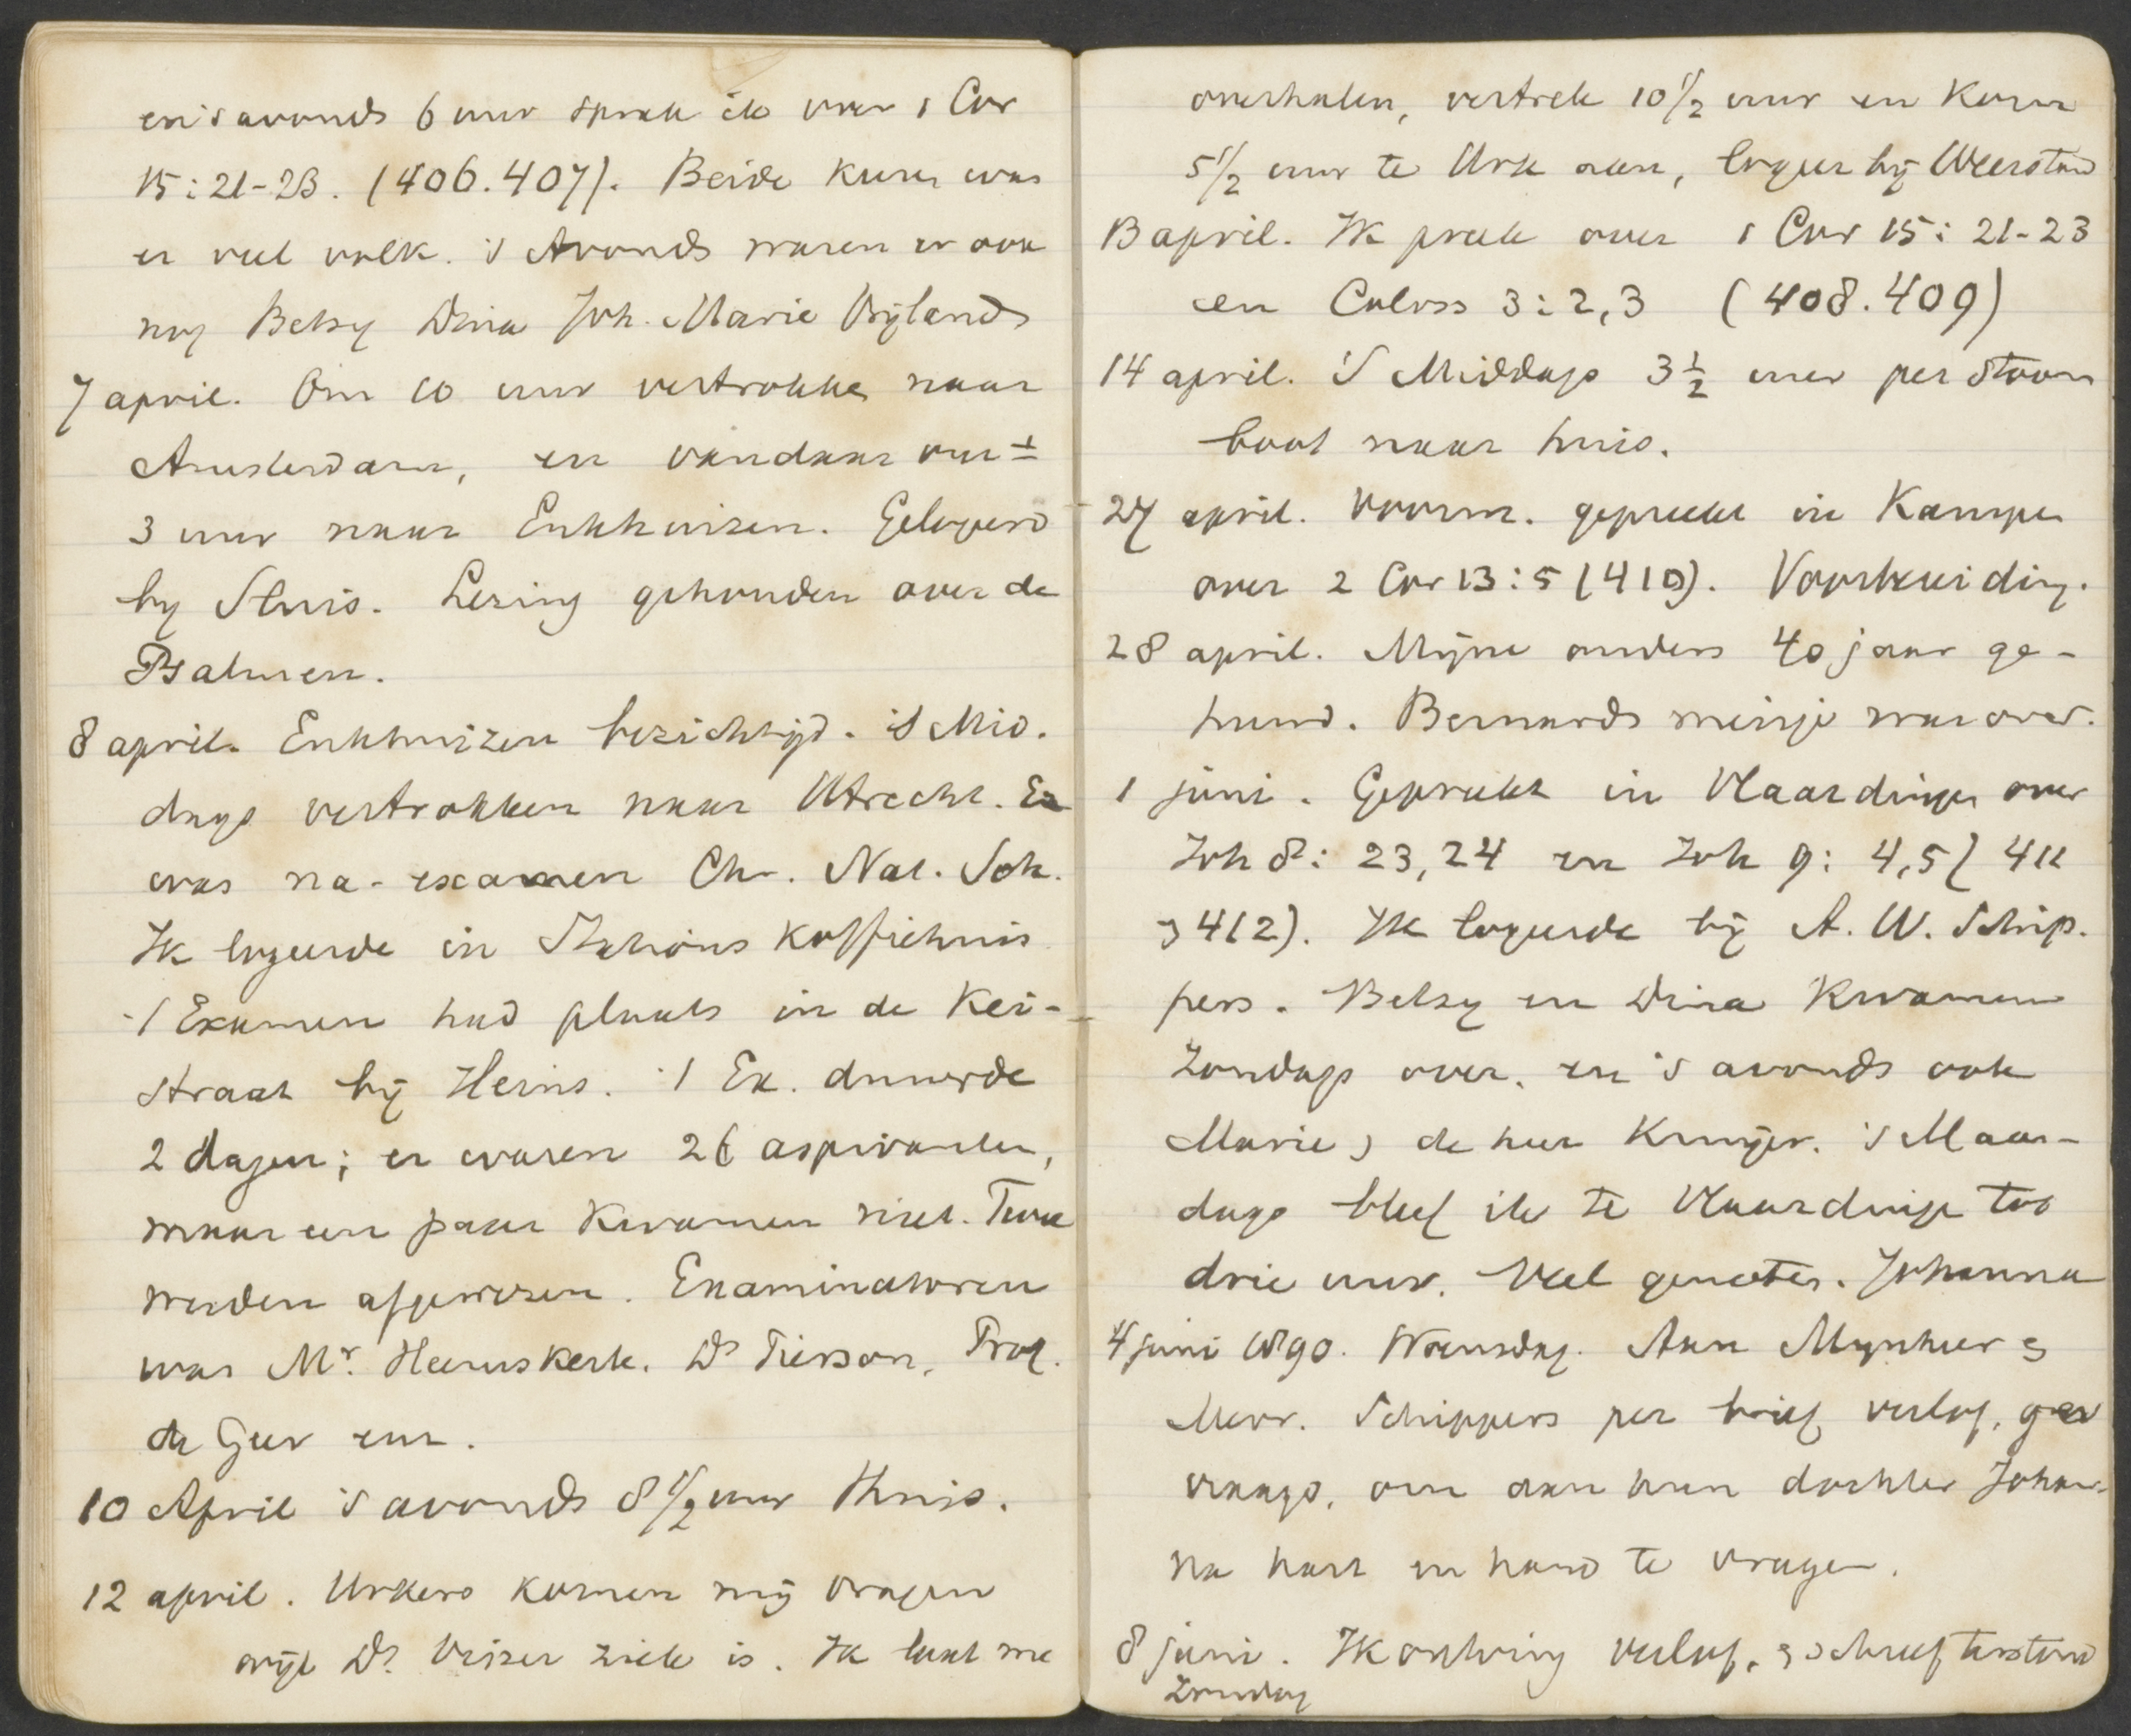 en 's avonds 6 uur sprak ik over 1 Cor
15:21-23. (406.407). Beide keren was
er veel volk. 's Avonds waren er ook
nog Betsy Dina Joh. Marie Vrijlands
7 april. Om 10 uur vertrokken naar
Amsterdam, en vandaar om ±
3 uur naar Enkhuizen. Gelogeerd
by Sluis. Lezing gehouden over de
Psalmen.
8 april. Enkhuizen bezichtigd. 's Mid.
dags vertrokken naar Utrecht. Er
was na-examen Chr. Nat. Sch.
Ik logeerde in Stations koffiehuis
't Examen had plaats in de Kei-
straat bij Heins. 't Ex. duurde
2 dagen; er waren 26 aspiranten,
maar een paar kwamen niet. Twee
werden afgewezen. Examinatoren
was Mr. Heemskerk. Ds Pierson, Prof.
de Geer enz.
10 April 's avonds 8 1/2 uur thuis.
12 april. Urkers komen mij vragen
wijl Ds. Vrizer ziek is. Ik laat me
overhalen, vertrek 10 1/2 uur en kom
5 1/2 uur te Urk aan, logeer bij Weerstand
13 april. Ik preek over 1 Cor 15: 21-23
en Coloss 3:2,3 (408.409)
14 april. 's Middags 3 1/2 uur per stoom
boot naar huis.
27 april. Voorm. gepreekt in Kampen
over 2 Cor 13:5 (410). Voorbereiding.
28 april. Mijne ouders 40 jaar ge-
huwd. Bernards meisje was over.
1 juni. Gepreekt in Vlaardingen over
Joh 8: 23,24 en Joh 9: 4,5 (411
& 412). Ik logeerde bij A. W. Schip.
pers. Betsy en Dina kwamen
Zondags over, en 's avonds ook
Marie & de heer Kruijer. 's Maan-
dags bleef ik te Vlaardingen tot
drie uur. Veel genoten. Johanna
4 juni 1890. Woensdag. Aan Mynheer &
Mevr. Schippers per brief verlof. ge
vraagd, om aan hun dochter Johan-
na hart en hand te vragen.
8 juni. Ik ontving verlof, & schreef terstond
Zondag